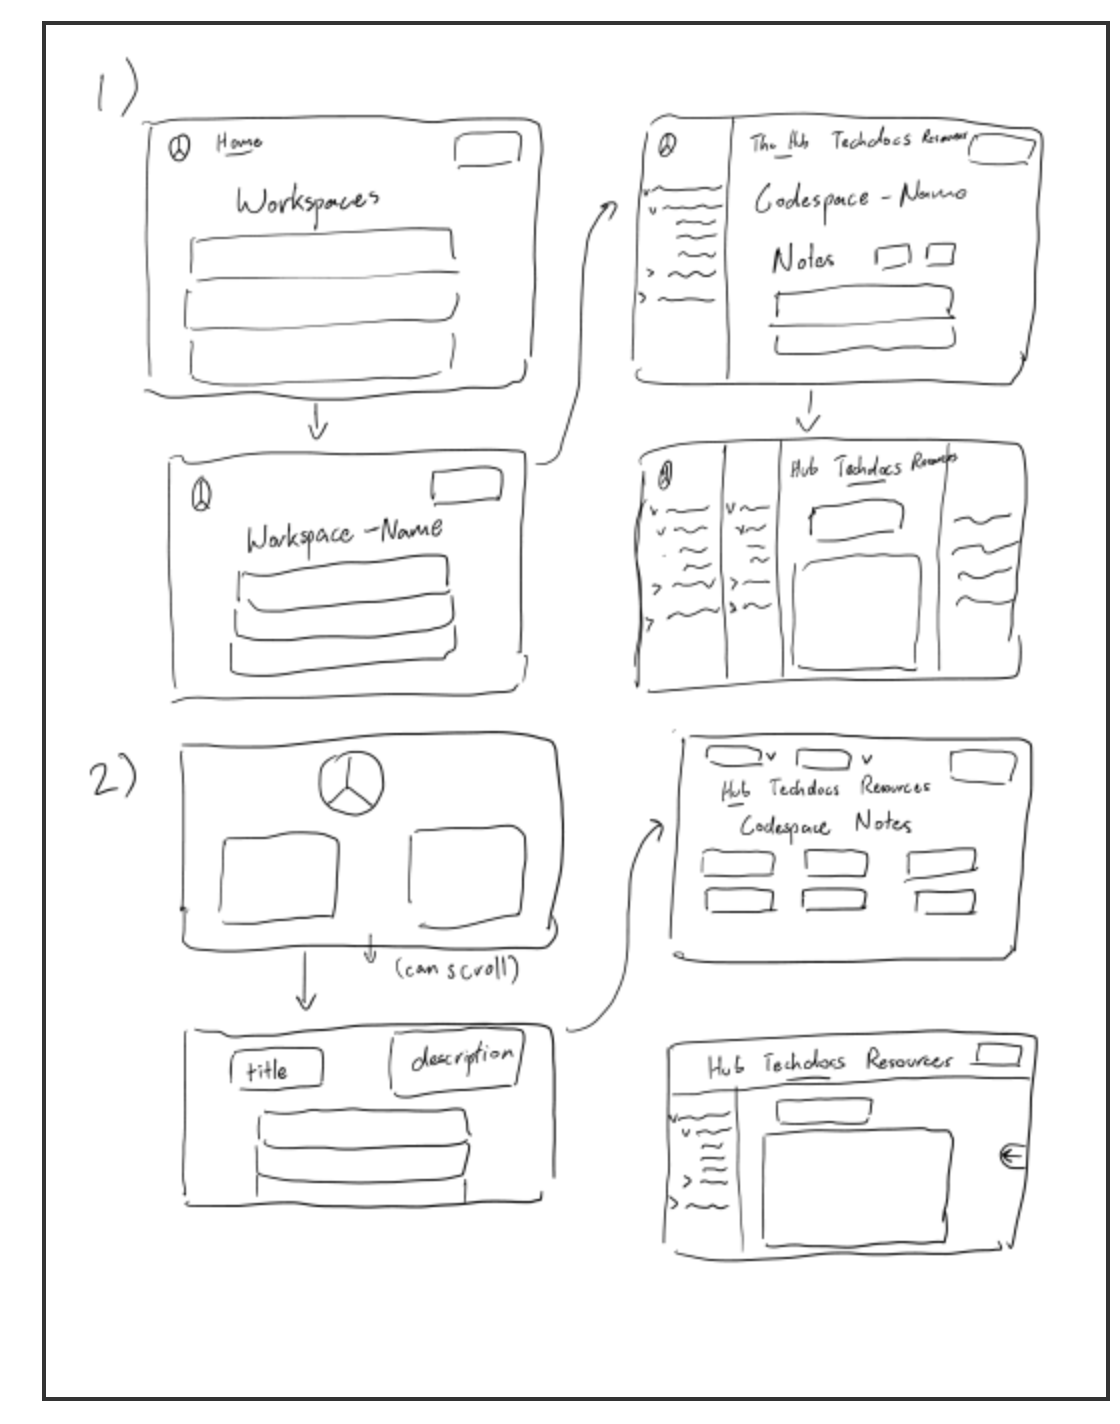 1)
Home
Workspaces
Workspace - Name
The Hub Techdocs Resources
Codespace - Name
Notes
Hub Techdocs Resources
2)
(can scroll)
title
description
Hub Techdocs Resources
Codespace Notes
Hub Techdocs Resources